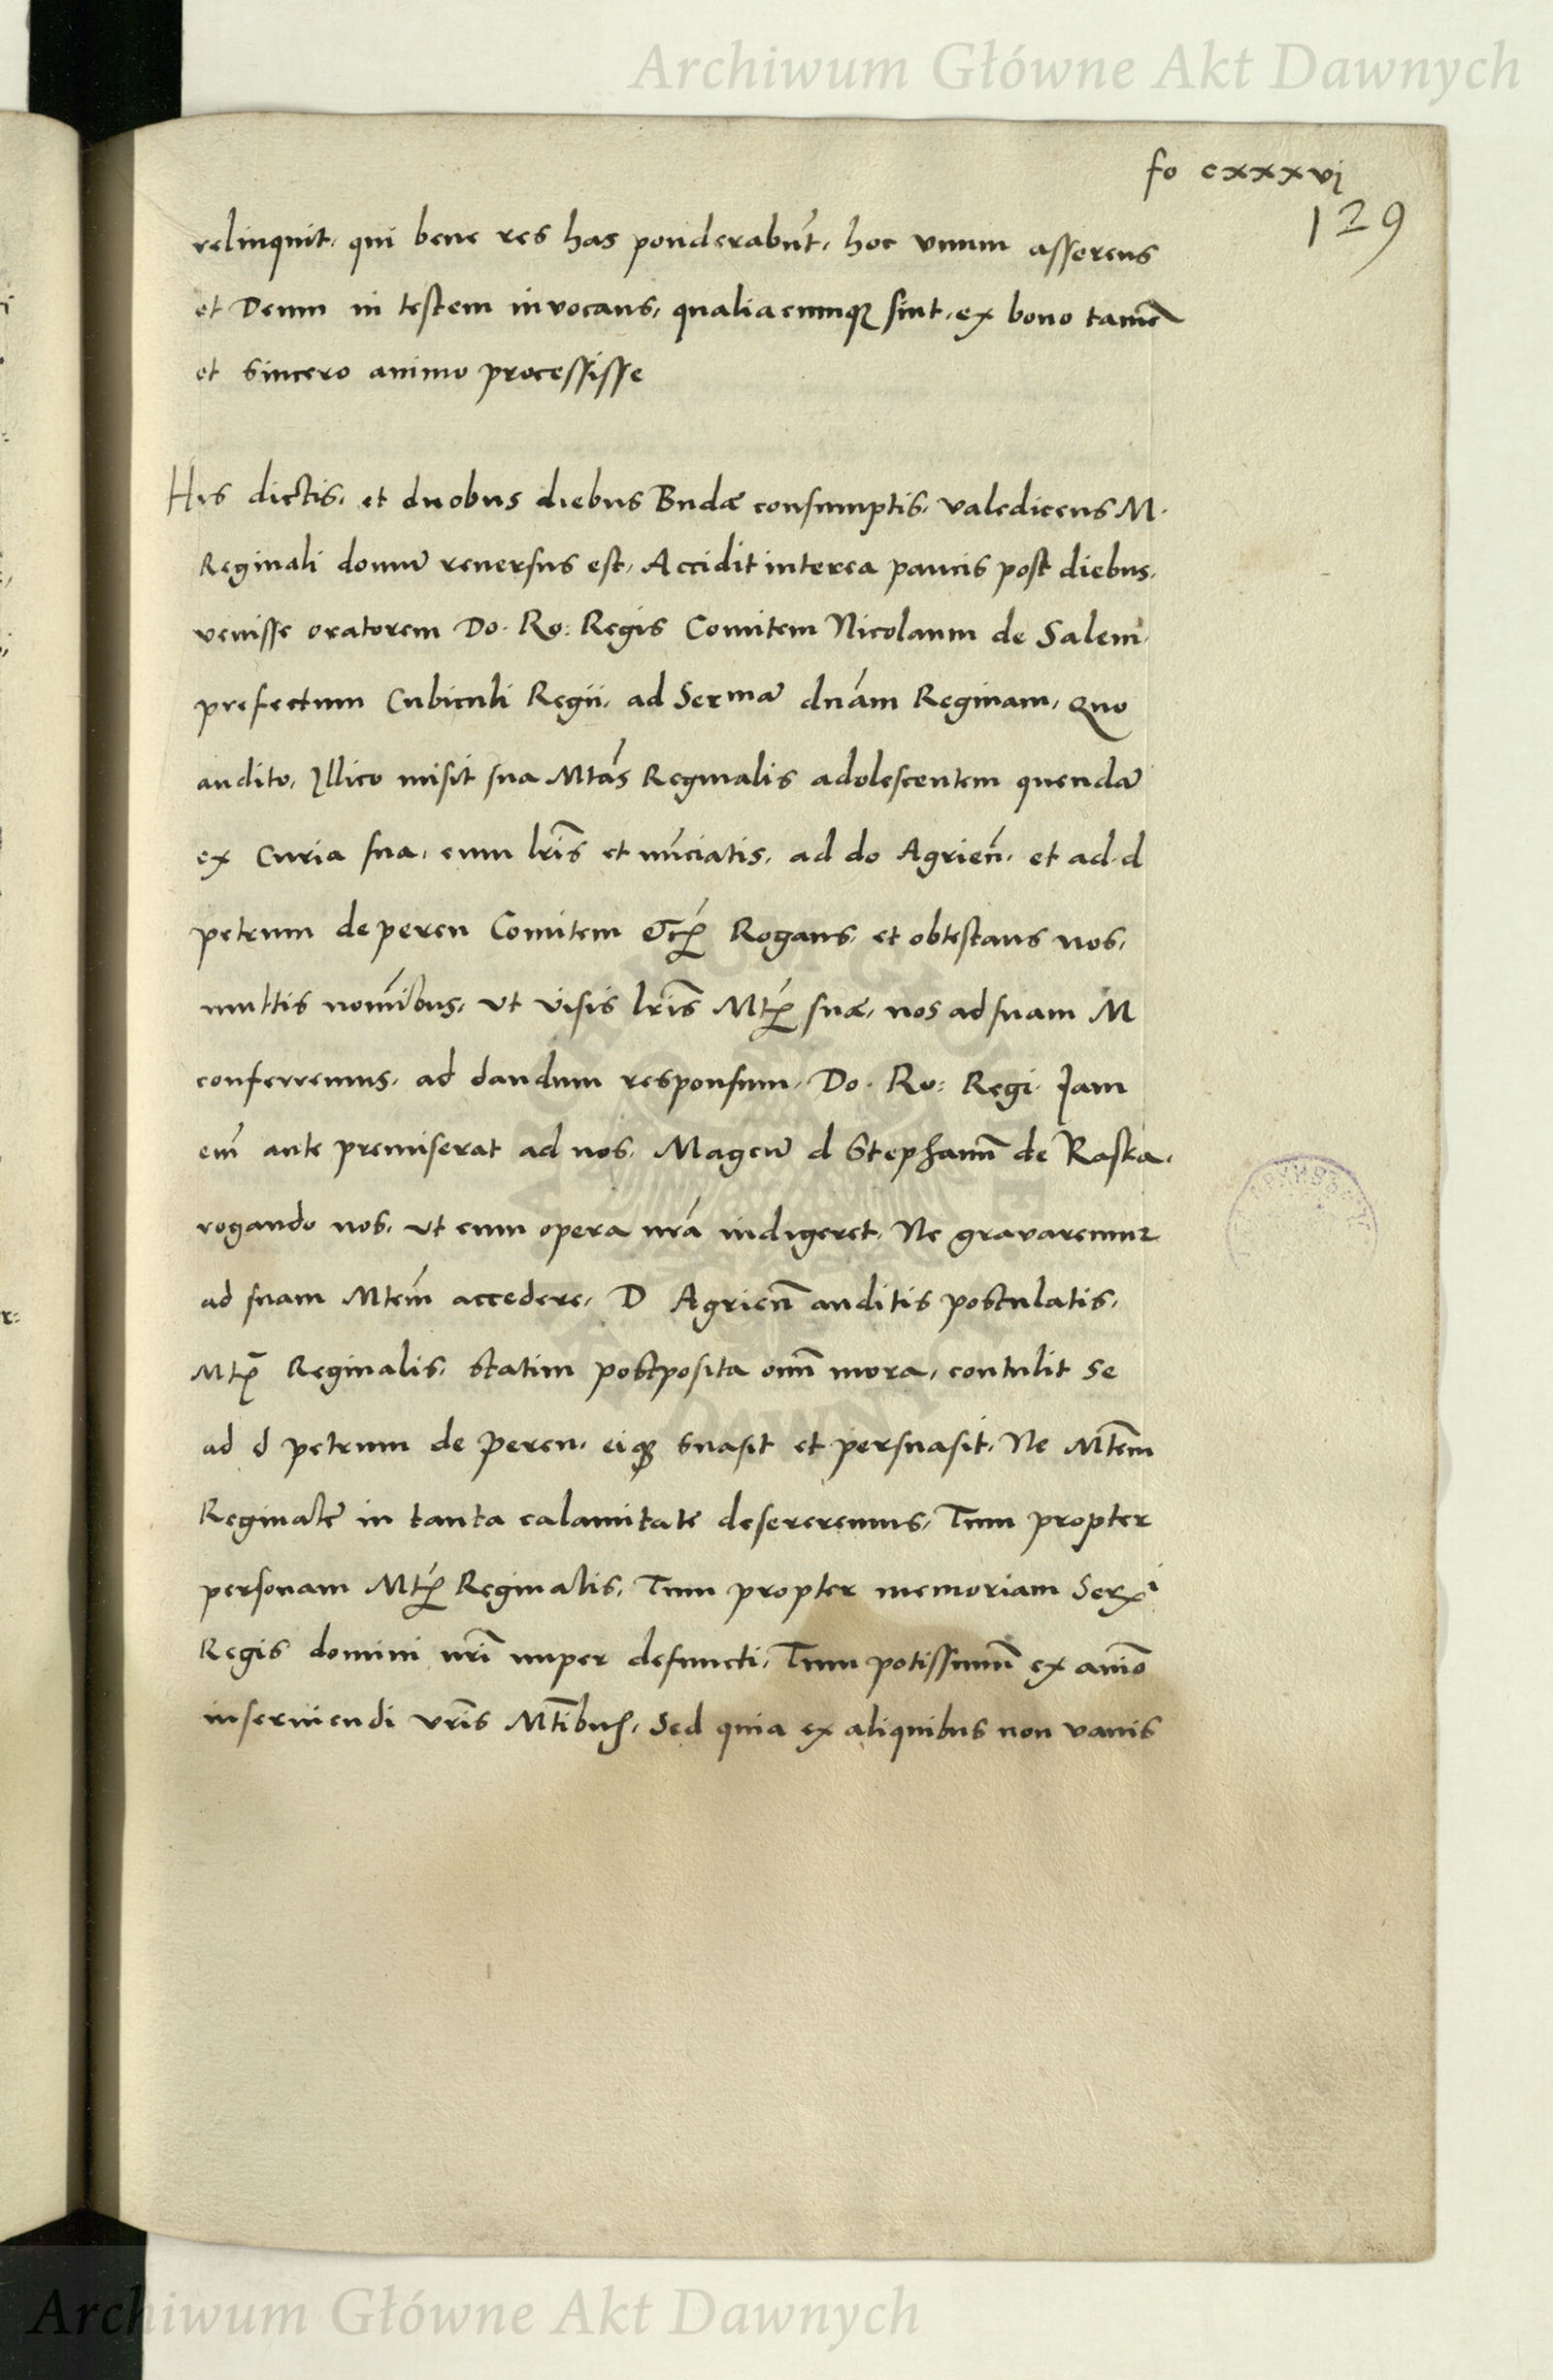 Archiwum Główne Akt Dawnych
fo cxxxvj
129
relinquit, qui bene res has ponderabūt, hoc unum asserens
et Deum in testem invocans, qualiacumq; sint, ex bono tamē
et sincero animo processisse
His dictis, et duobus diebus Budæ consumptis, valedicens M.
Reginali domū reversus est, Accidit interea paucis post diebus,
venisse oratorem Do. Ro: Regis Comitem Nicolaum de Salem,
prefectum Cubiculi Regii, ad Sermā dnām Reginam, Quo
audito, Illico misit sua Mtās Reginalis adolescentem quendā
ex Curia sua, cum lrīs et nūciatis, ad do Agrieñ, et ad d
petrum de peren Comitem &c. Rogans, et obtestans nos,
multis nomībus, ut visis lrīs Mtꝭ suæ, nos ad suam M
conferremus, ad dandum responsum, Do. Ro: Regi. Jam
em̄ ante premiserat ad nos, Magcū d Stephanū de Raska,
rogando nos, ut cum opera nrā indigeret, Ne gravaremur
ad suam Mtem̄ accedere, D Agrien̄ auditis postulatis,
Mtꝭ Reginalis, statim postposita om̄i mora, contulit se
ad d petrum de Peren, eiq; suasit et persuasit, Ne Mtem̄
Reginalē in tanta calamitate desereremus, Tum propter
personam Mtꝭ Reginalis, Tum propter memoriam Serᵐⁱ
Regis domini nrī nuper defuncti, Tum potissimū ex aniō
inserviendi vrīs Mtībus, Sed quia ex aliquibus non vanis
Archiwum Główne Akt Dawnych